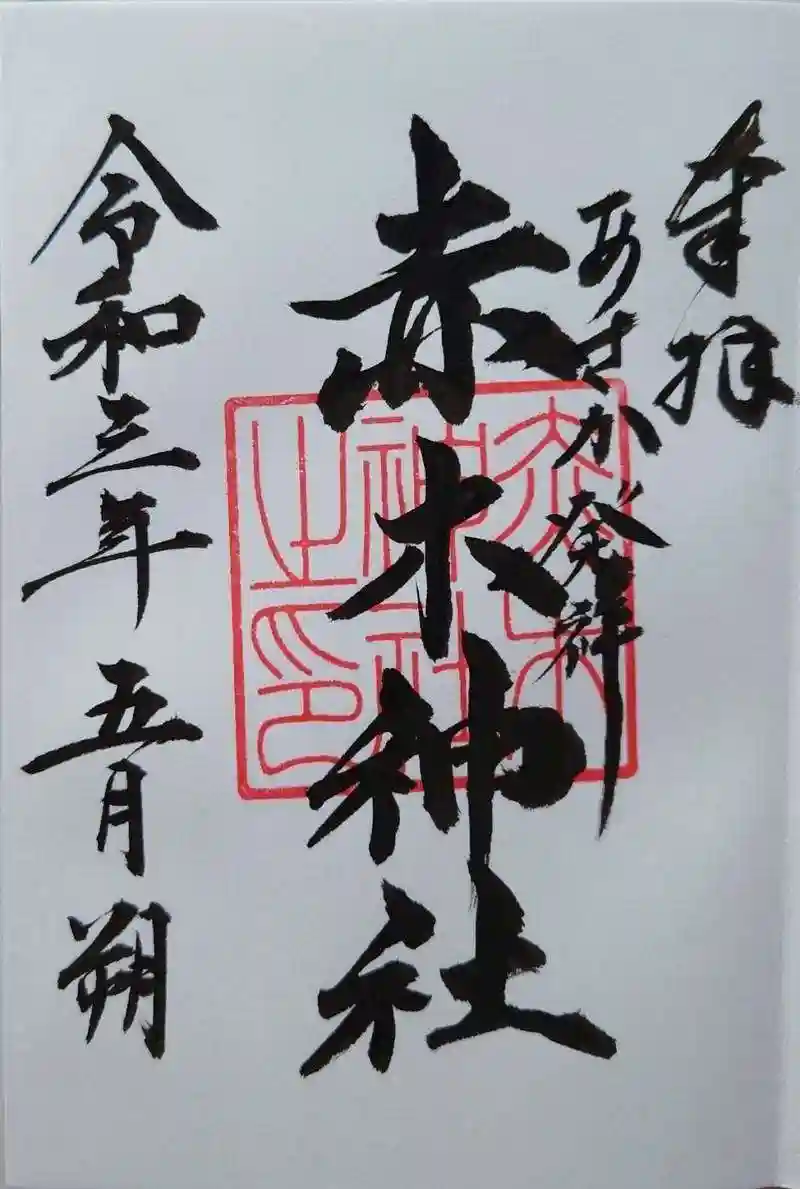 奉拝
あさか発祥
赤木神社
赤木
神社
之印
令和三年五月朔